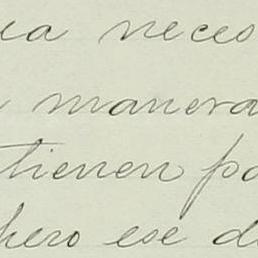 ea neces
manera
tienen pa
pero ese d